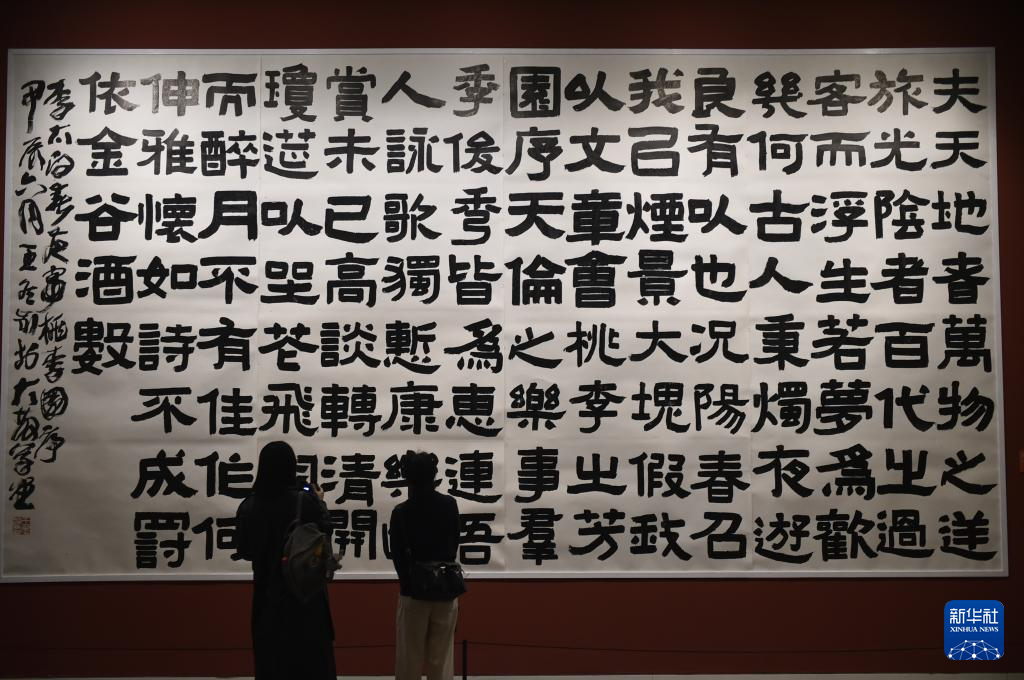 夫天地者萬物之逆
旅光陰者百代之過
客而浮生若夢爲歡
幾何古人秉燭夜遊
良有以也況陽春召
我㠯煙景大塊假我
以文章會桃李之芳
園序天倫之樂事羣
季俊秀皆爲惠連吾
人詠歌獨慙康樂幽
賞未已高談轉清開
瓊筵以坐花飛
而醉月不有佳作何
伸雅懷如詩不成罰
依金谷酒數
李太白春夜宴桃李園序
甲辰六月王冬齡
新华社
XINHUA NEWS